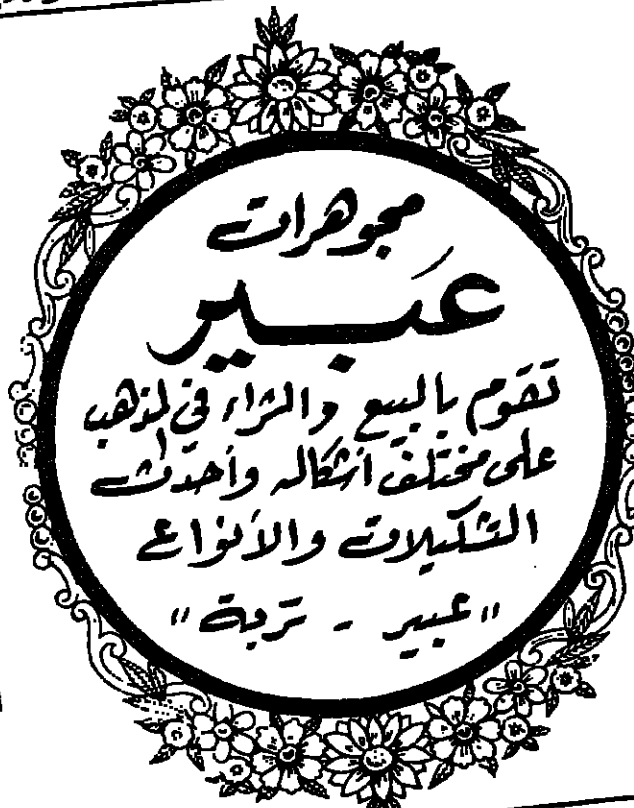 مجوهرات
عبير
تقوم بالبيع والشراء في الذهب
على مختلف أشكاله وأحدث
التشكيلات والأنواع
"عبير - تربة"